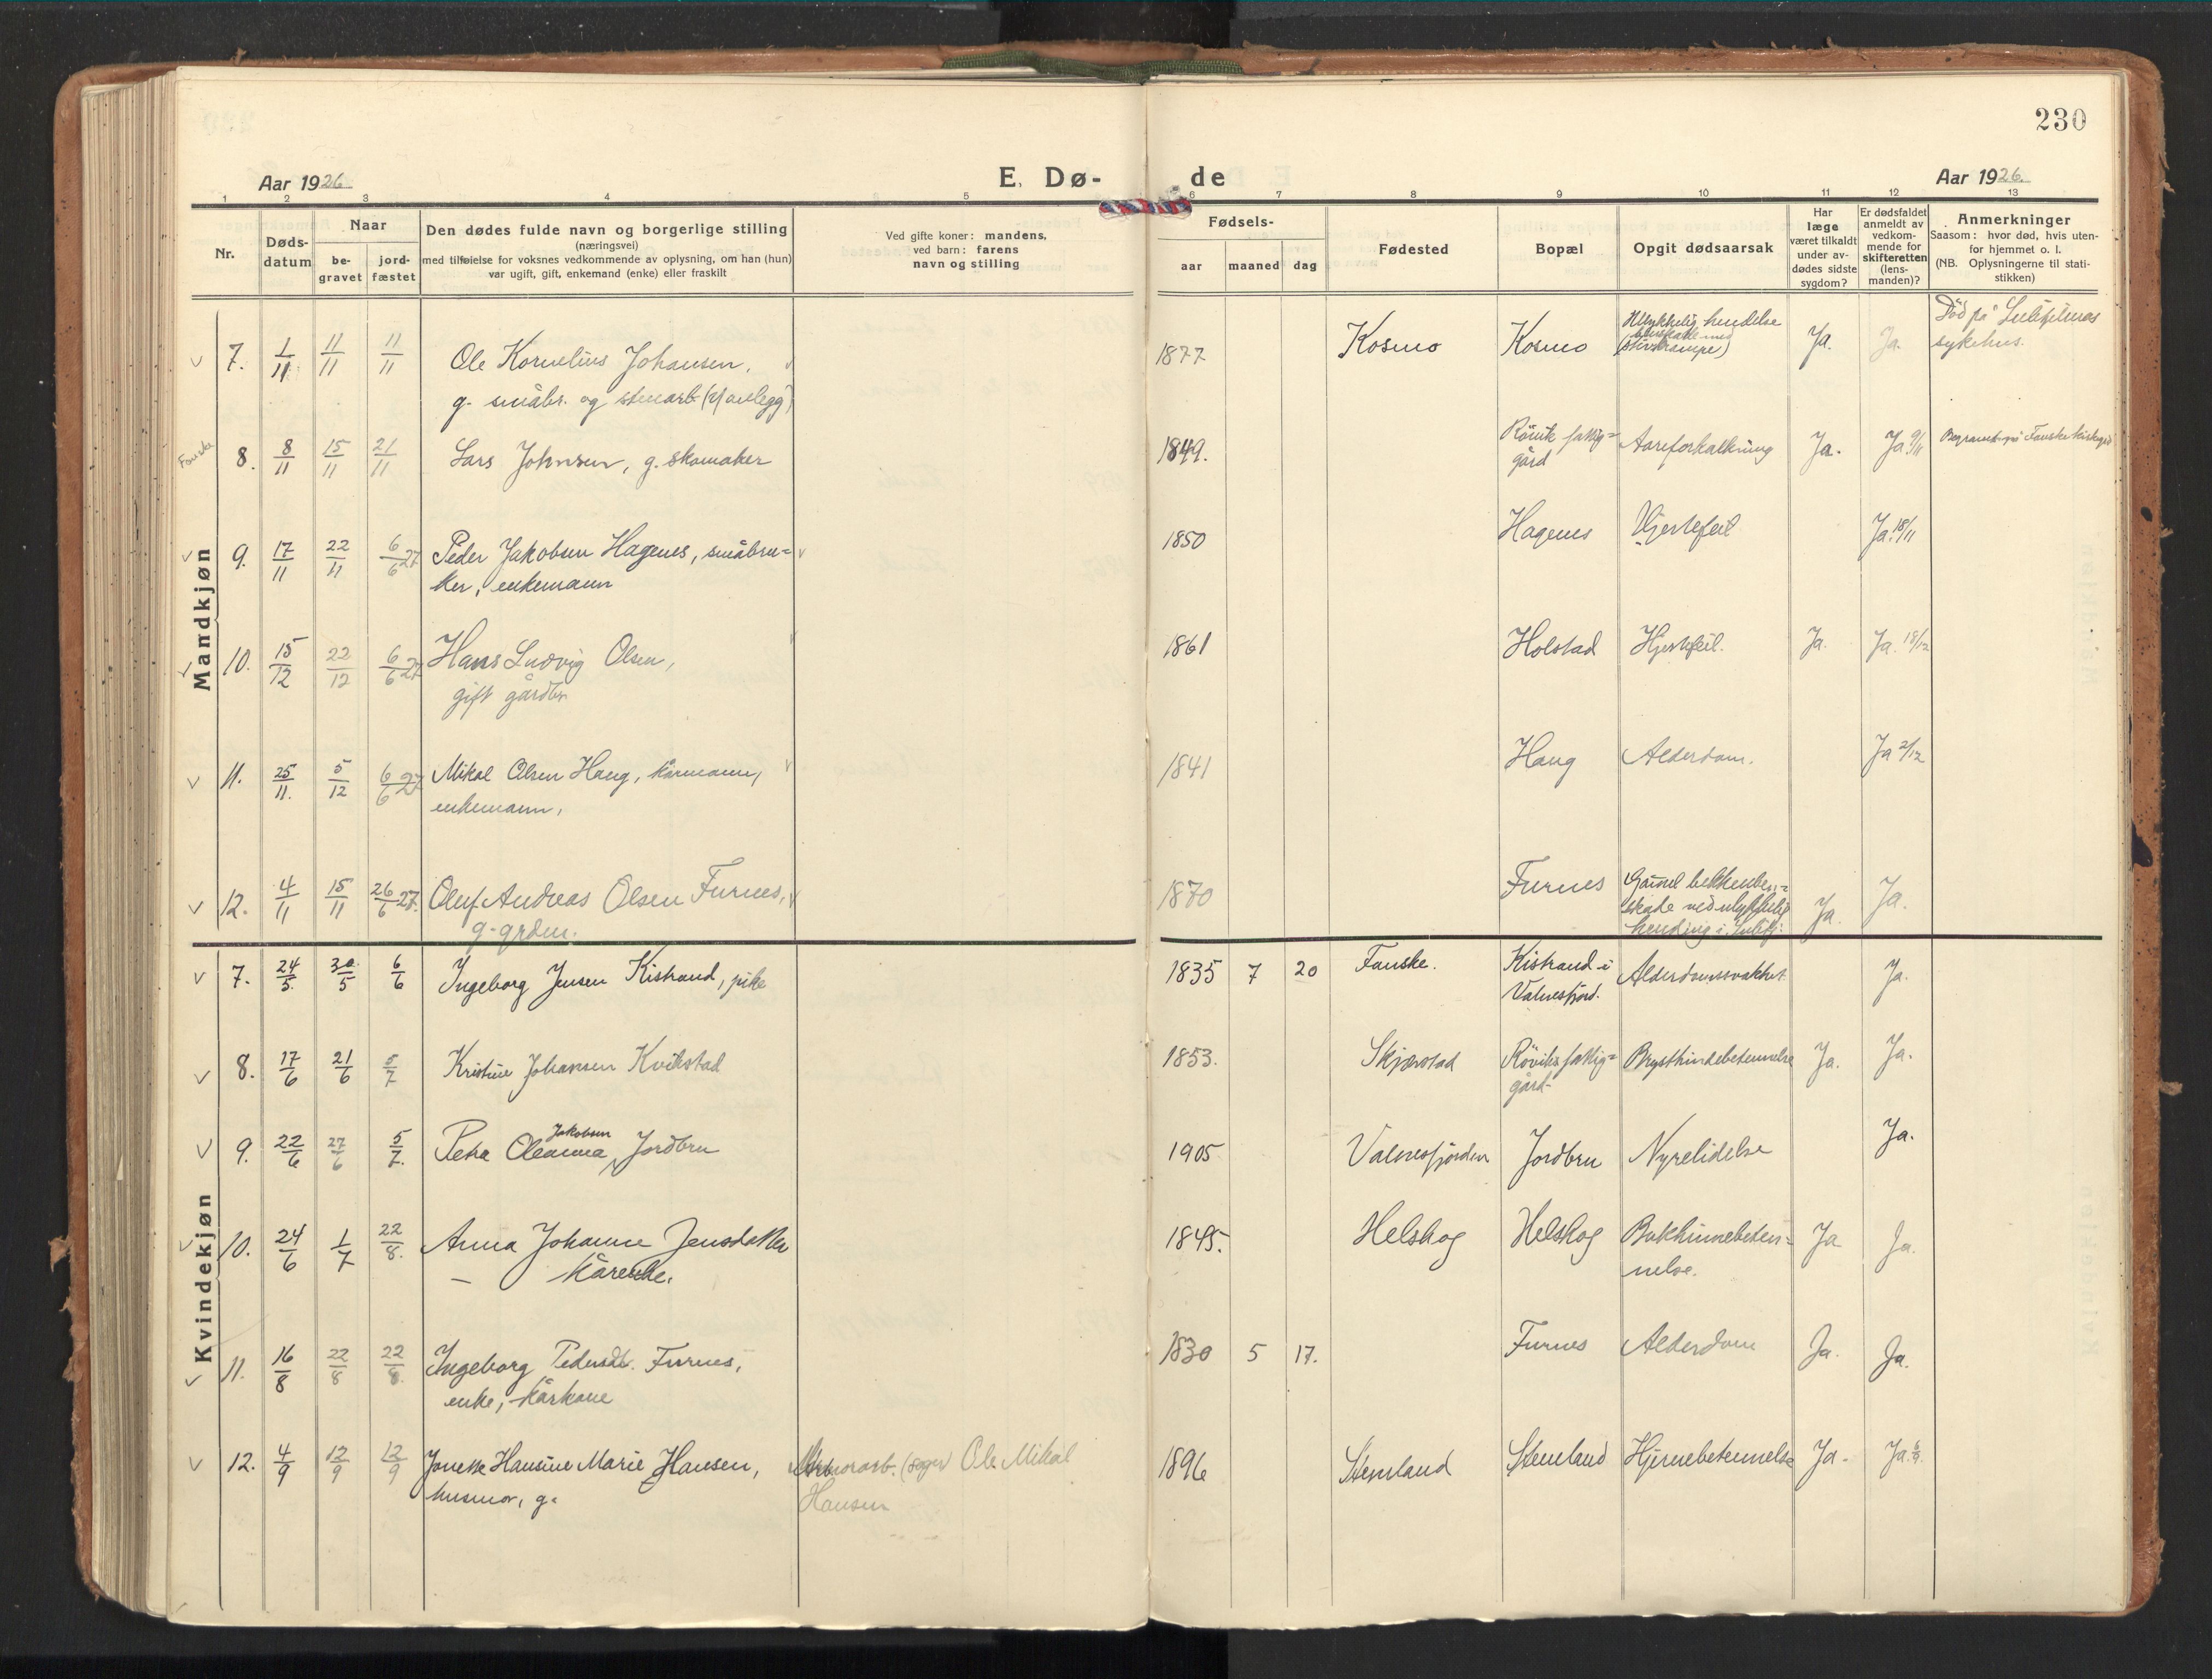 230
Aar 1926
E. Dø-
de
Aar 1926.
1 2 3 4 5 6 7 8 9 10 11 12 13
Nr.
Døds-
datum
Naar
be-
gravet
jord-
fæstet
Den dødes fulde navn og borgerlige stilling
(næringsvei)
med tilføielse for voksnes vedkommende av oplysning, om han (hun)
var ugift, gift, enkemand (enke) eller fraskilt
Ved gifte koner: mandens,
ved barn: farens
navn og stilling
Fødsels-
aar maaned dag
Fødested
Bopæl
Opgit dødsaarsak
Har
læge
været tilkaldt
under av-
dødes sidste
sygdom?
Er dødsfaldet
anmeldt av
vedkom-
mende for
skifteretten
(lens-
manden)?
Anmerkninger
Saasom: hvor død, hvis uten-
for hjemmet o. l.
(NB. Oplysningerne til stati-
stikken)
Mandkjøn
7. 1/11 11/11 11/11 Ole Kornelius Johansen,
g. småbr. og stenarb.
1877 Kosmo Kosmo Ulykkelig hendelse
Ja. Ja. Død på
sykehus.
Fauske
8. 8/11 15/11 21/11 Lars Johnsen, g. skomaker
1849. Rövik fattig=
gård Aareforkalkning Ja. Ja 9/11 Begravet på Fauske kirkegård
9. 17/11 22/11 6/6 27 Peder Jakobsen Hagenes, småbru=
ker, enkemann
1850 Hagenes Hjertefeil Ja. 18/11
10. 15/12 22/12 6/6 27 Hans Ludvig Olsen,
gift gårdbr
1861 Holstad Hjertefeil. Ja. Ja. 18/12
11. 25/11. 5/12 6/6 27 Mikal Olsen Haug, kårmann,
enkemann,
1841 Haug Alderdom. Ja 2/12
12. 4/11 15/11 26/6 27. Oluf Andreas Olsen Furnes,
g. grdm.
1870 Furnes Gammel bekkenben=
skade ved ulykkelig
hending i
Ja. Ja.
Kvindekjøn
7. 24/5. 30/5 6/6 Ingeborg Jensen Kistrand, pike
1835 7 20 Fauske. Kistrand i
Valnesfjord. Alderdomssvakhet Ja.
8. 17/6 21/6 5/7 Kristine Johansen Kvikstad
1853. Skjerstad Röviks fattig=
gård Brysthindebetennelse Ja. Ja.
9. 22/6 27/6 5/7. Petra Oleanna Jakobsen Jordbru
1905 Valnesfjorden Jordbru Nyrelidelse Ja.
10. 24/6 1/7 22/8. Anna Johanne Jensdatter
— kårenke.
1845. Helskog Helskog Bukhinnebeten=
nelse. Ja Ja.
11. 16/8 22/8 22/8. Ingeborg Pedersdt. Furnes,
enke, kårkone
1830 5 17. Furnes Alderdom Ja. Ja.
12. 4/9 12/9 12/9 Jonette Hansine Marie Hansen,
husmor, g.
Ole Mikal
Hansen
1896 Stemland Stemland Hjernebetennelse Ja. Ja. 6/9.